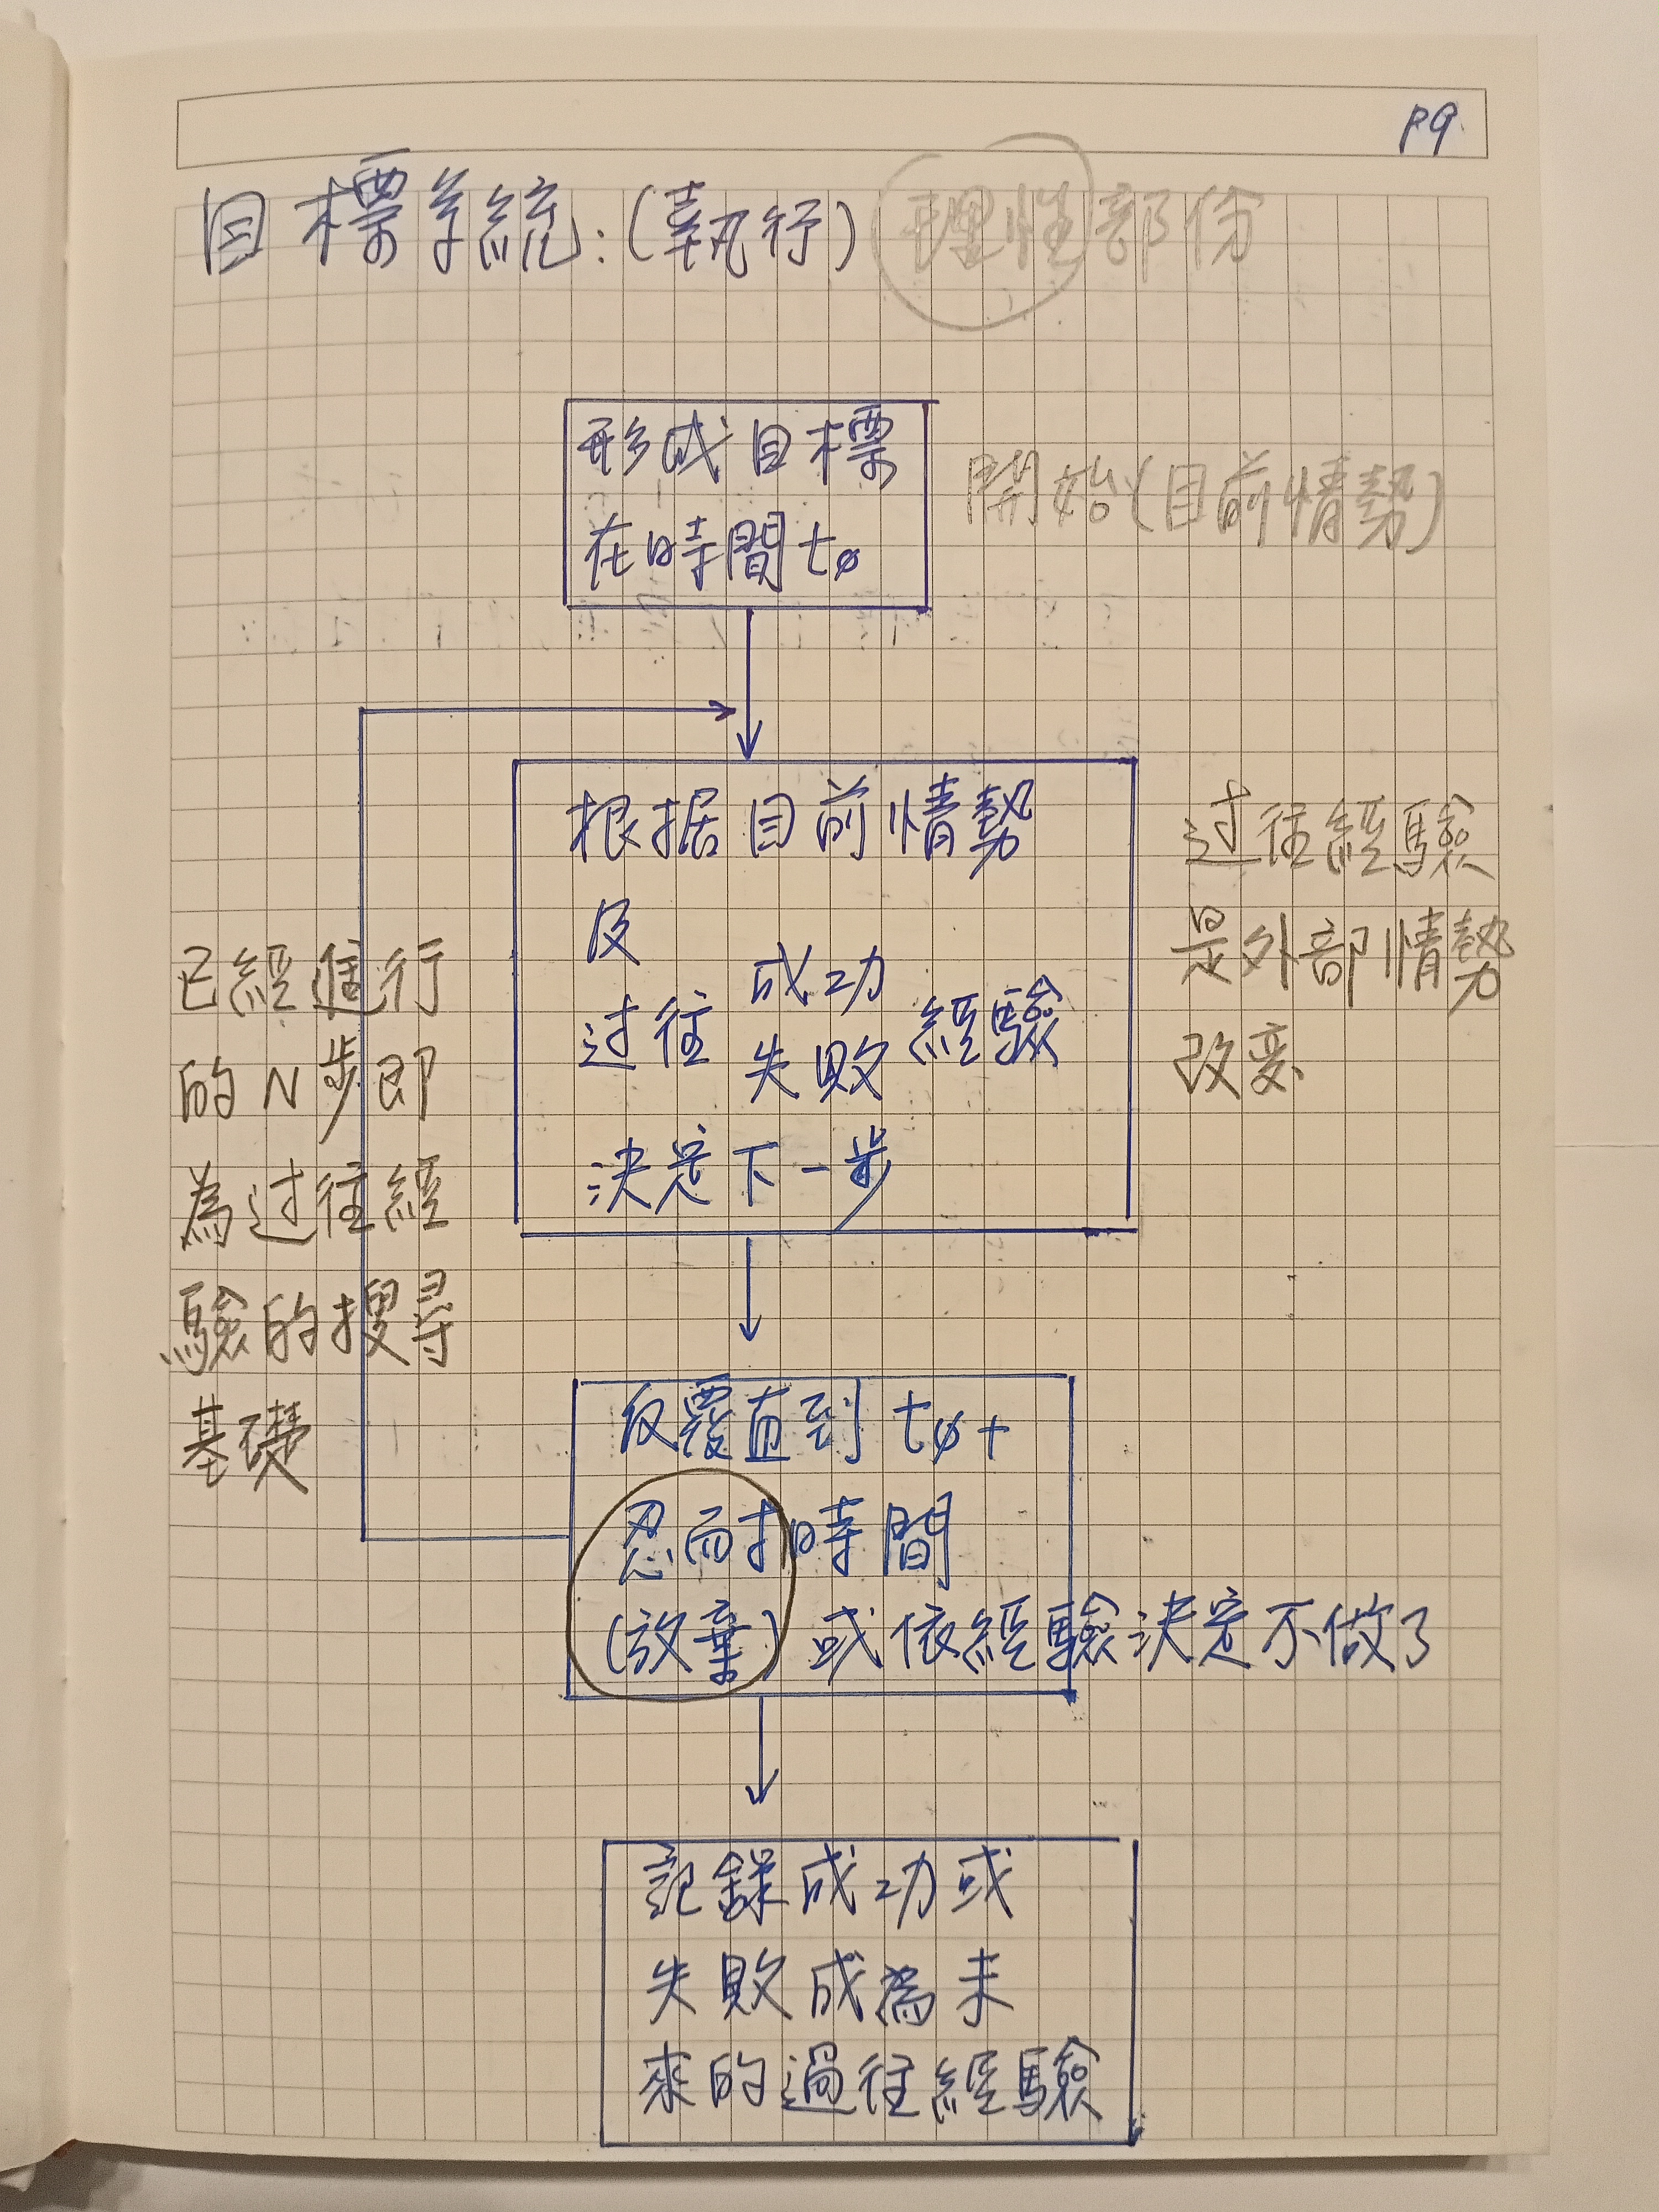 P9.
目標系統:(執行) 理性部份
形成目標
在時間 tø
開始(目前情勢)
根据目前情勢
及
过往 成功 失敗 經驗
決定下一步
过往經驗
是外部情勢
改变
已經進行
的N步即
為过往經
驗的搜尋
基礎
反覆直到 tø+
忍而扌時間
(放棄) 或依經驗決定不做了
記錄成功或
失敗成為未
來的過往經驗